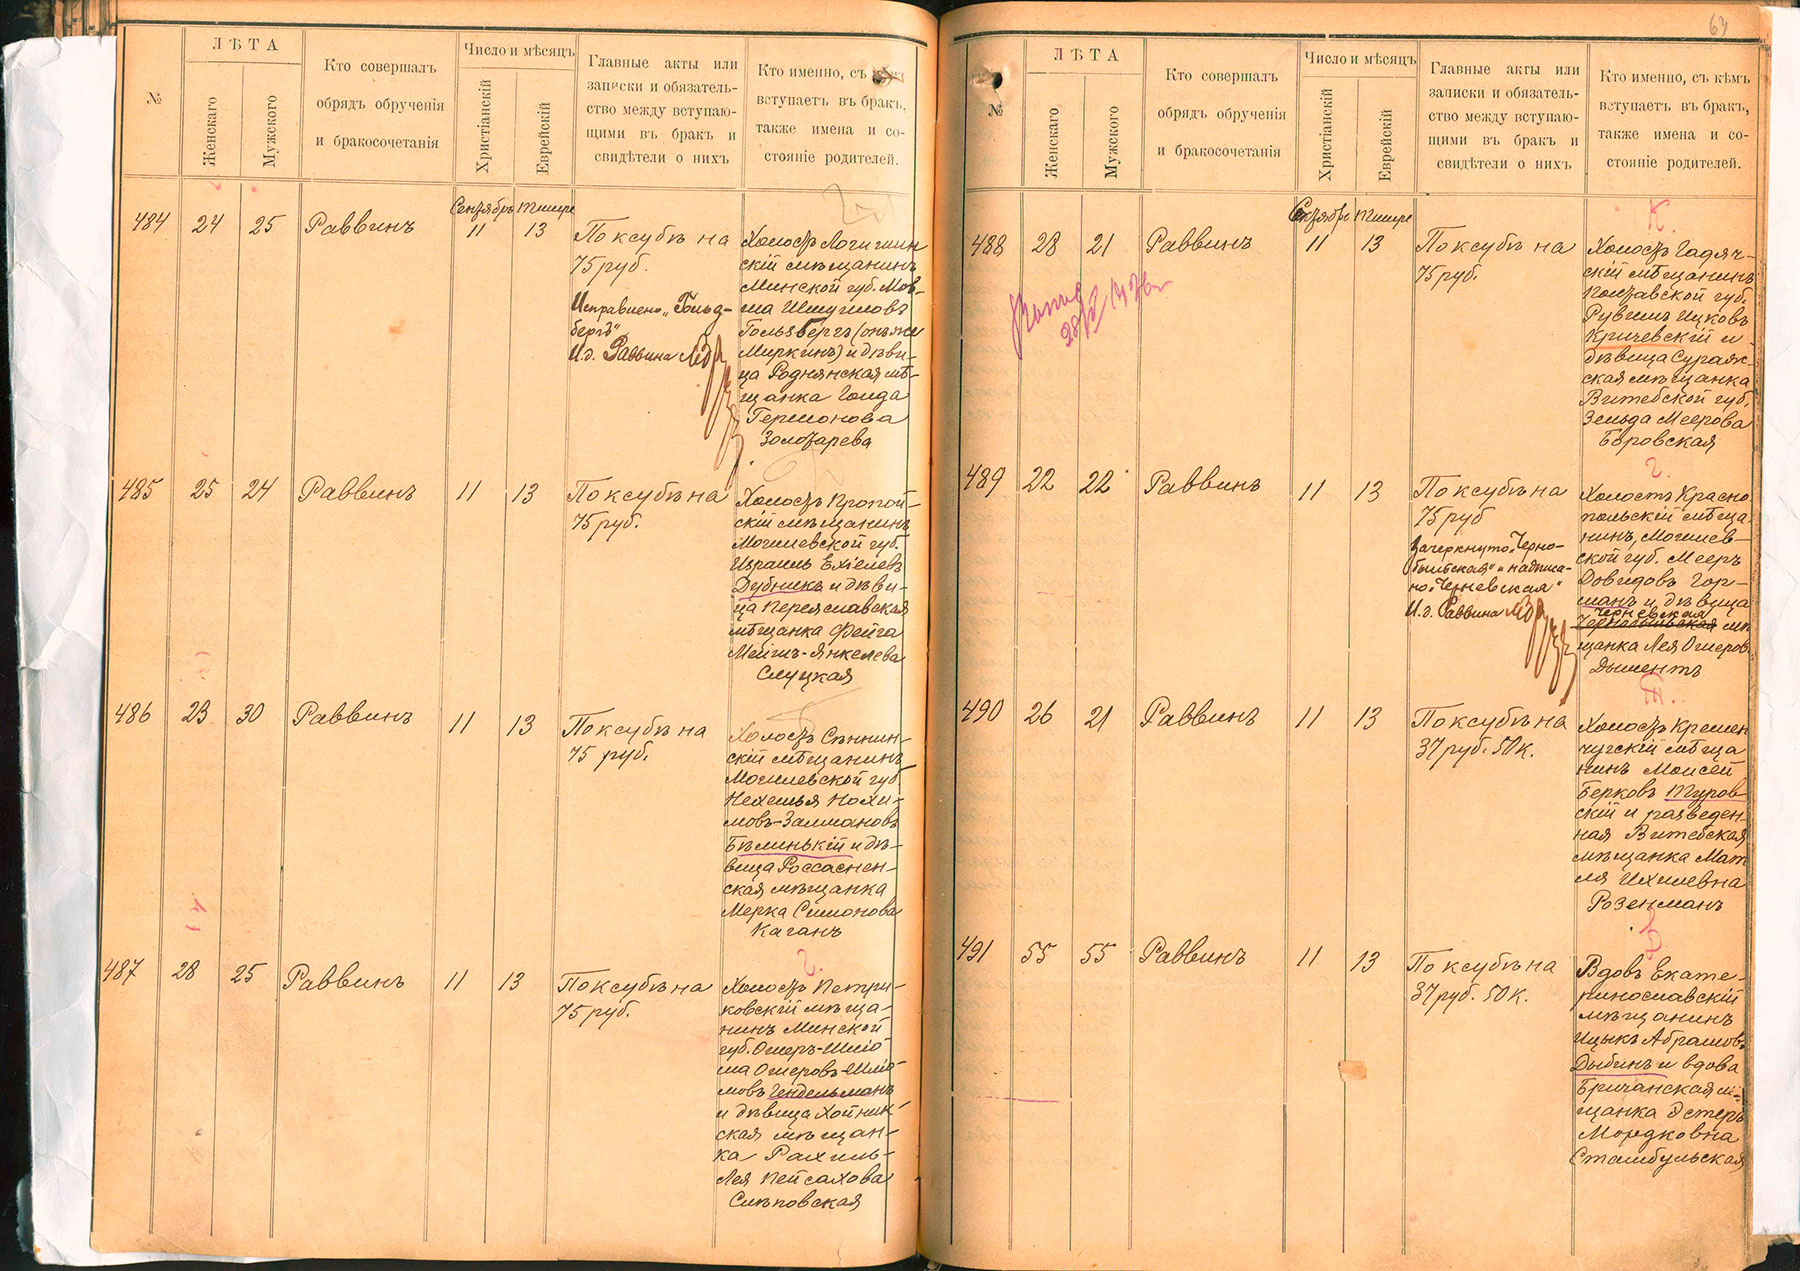 №
ЛѢТА
Женскаго
Мужского
Кто совершалъ
обрядъ обрученія
и бракосочетанія
Число и мѣсяцъ
Христіанскій
Еврейскій
Главные акты или
записки и обязатель-
ство между вступаю-
щими въ бракъ и
свидѣтели о нихъ
Кто именно, съ
вступаетъ въ бракъ,
также имена и со-
стояніе родителей.
Сентябрь Тишре
484 24 25 Раввинъ 11 13
По ксубѣ на
75 руб.
Исправлено „Гольд-
бергъ“
И.д. Раввина
Холостъ Логишин
скій мѣщанинъ
Минской губ. Мов-
ша Шмуиловъ
Гольдбергъ (онъ же
Миркинъ) и дѣви-
ца Роднянская мѣ-
щанка Голда
Гершонова
Золотарева
485 25 24 Раввинъ 11 13
По ксубѣ на
75 руб.
Холостъ Пропой-
скій мѣщанинъ
Могилевской губ.
Израиль Ехіелевъ
Дубникъ и дѣви-
ца Переяславская
мѣщанка Фейга
Мейшъ-Янкелева
Слуцкая
486 23 30 Раввинъ 11 13
По ксубѣ на
75 руб.
Холостъ Сѣннин-
скій мѣщанинъ
Могилевской губ.
Нехемья Нохи-
мовъ-Залмановъ
Бѣлинькій и дѣ-
вица Россаснен-
ская мѣщанка
Мерка Симонова
Каганъ
487 28 25 Раввинъ 11 13
По ксубѣ на
75 руб.
Г.
Холостъ Петри-
ковскій мѣща-
нинъ Минской
губ. Ошеръ-Шлио
ма Ошеровъ-Шліо
мовъ Гендельманъ
и дѣвица Хойник-
ская мѣщан-
ка Рахиль-
Лея Пейсахова
Слѣповская
63
№
ЛѢТА
Женскаго
Мужского
Кто совершалъ
обрядъ обрученія
и бракосочетанія
Число и мѣсяцъ
Христіанскій
Еврейскій
Главные акты или
записки и обязатель-
ство между вступаю-
щими въ бракъ и
свидѣтели о нихъ
Кто именно, съ кѣмъ
вступаетъ въ бракъ,
также имена и со-
стояніе родителей.
Сентябрь Тишре
488 28 21 Раввинъ 11 13
По ксубѣ на
75 руб.
К.
Холостъ Гадяч-
скій мѣщанинъ
Полтавской губ.
Рувимъ Ицковъ
Кричевскій и
дѣвица Сураж-
ская мѣщанка
Витебской губ.
Зельда Меерова
Боровская
489 22 22 Раввинъ 11 13
По ксубѣ на
75 руб
Зачеркнуто „Черно-
быльская“ и надписа-
но „Черневская“
И.д. Раввина
Г.
Холостъ Красно
польскій мѣща-
нинъ, Могилев-
ской губ. Мееръ
Довидовъ Гор-
манъ и дѣвица
Черневская
Чернобыльская мѣ
щанка Лея Ошеров
Дыментъ
490 26 21 Раввинъ 11 13
По ксубѣ на
37 руб. 50 к.
Т.
Холостъ Кремен
чугскій мѣща
нинъ Моисей
Берковъ Туров-
скій и разведен-
ная Витебская
мѣщанка Мат
ля Ихилевна
Розенманъ
491 55 55 Раввинъ 11 13
По ксубѣ на
37 руб. 50 к.
Вдовъ Екате-
ринославскій
мѣщанинъ
Ицыкъ Абрамов.
Дыбинъ и вдова
Бричанская мѣ
щанка Эстеръ
Мордковна
Стамбульская